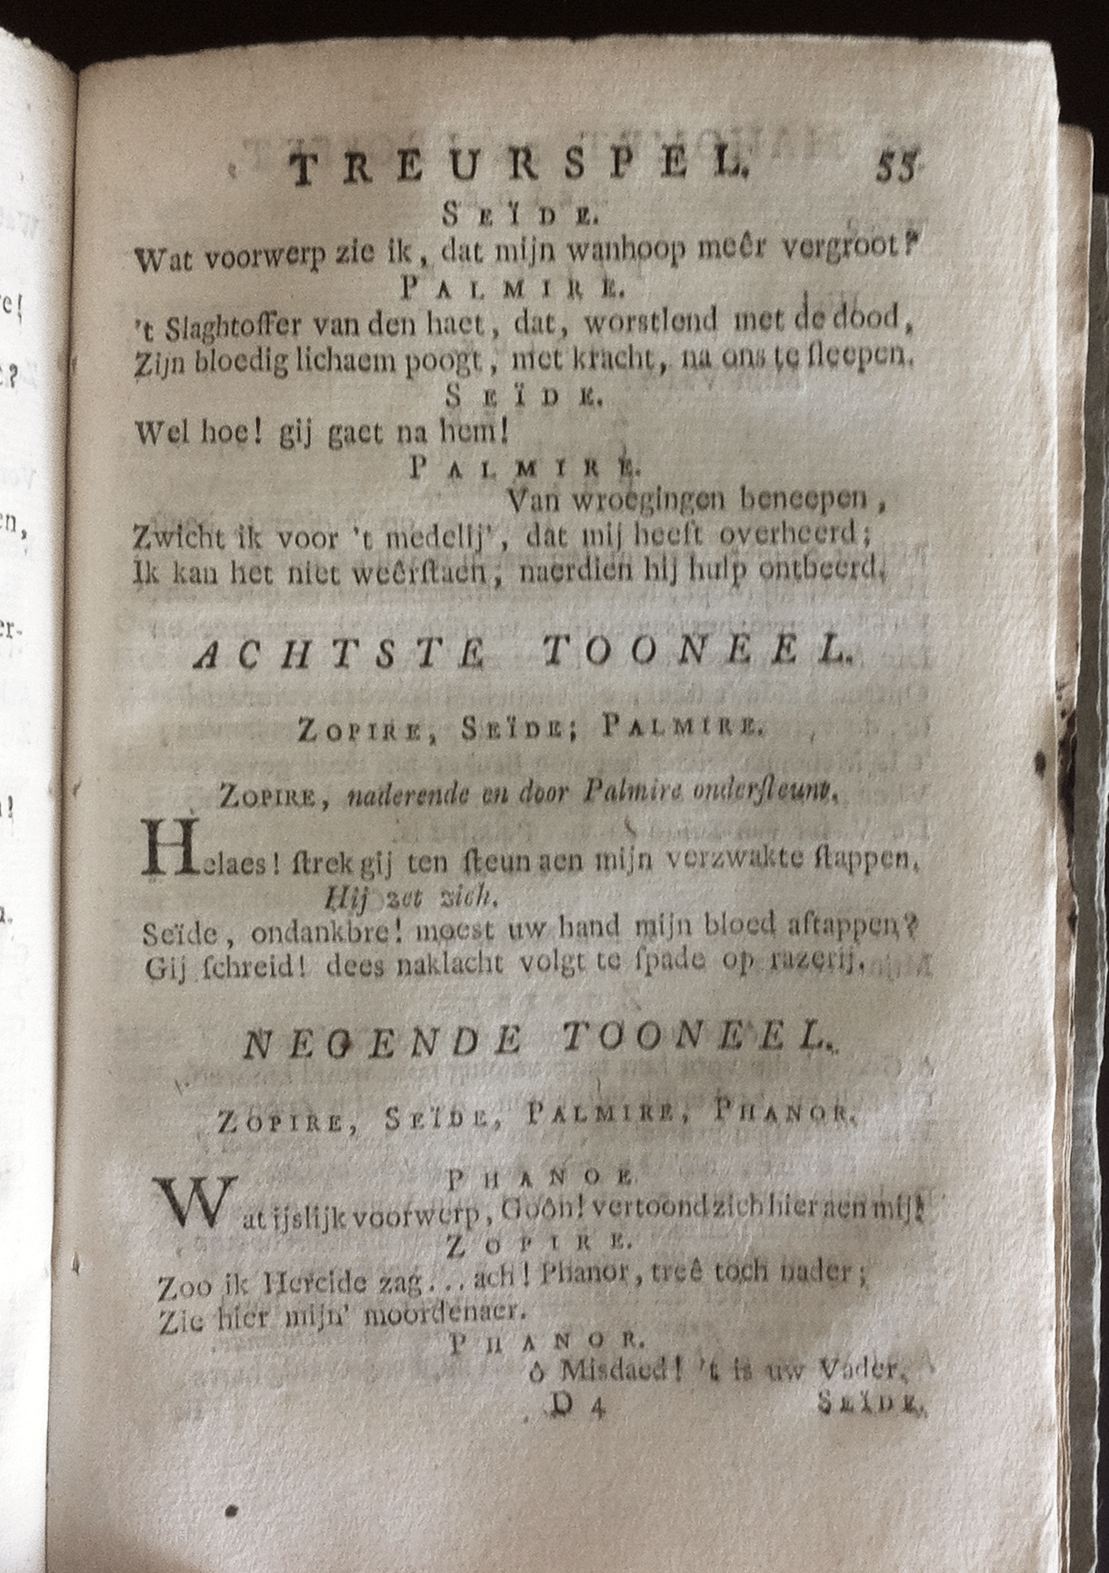 TREURSPEL. 55
SEÏDE.
Wat voorwerp zie ik, dat mijn wanhoop meêr vergroot?
PALMIRE.
't Slaghtoffer van den haet, dat, worstlend met de dood,
Zijn bloedig lichaem poogt, met kracht, na ons te sleepen.
SEÏDE.
Wel hoe! gij gaet na hem!
PALMIRE.
Van wroegingen beneepen,
Zwicht ik voor 't medelij', dat mij heeft overheerd;
Ik kan het niet weêrstaen, naerdien hij hulp ontbeerd.
ACHTSTE TOONEEL.
ZOPIRE, SEÏDE; PALMIRE.
ZOPIRE, naderende en door Palmire ondersteunt.
Helaes! strek gij ten steun aen mijn verzwakte stappen.
Hij zet zich.
Seïde, ondankbre! moest uw hand mijn bloed aftappen?
Gij schreid! dees naklacht volgt te spade op razerij.
NEGENDE TOONEEL.
ZOPIRE, SEÏDE, PALMIRE, PHANOR.
PHANOE
Wat ijslijk voorwerp, Goôn! vertoond zich hier aen mij!
ZOPIRE.
Zoo ik Hercide zag... ach! Phanor, treê toch nader;
Zie hier mijn' moordenaer.
PHANOR.
ô Misdaed! 't is uw Vader.
D 4 SEÏDE.